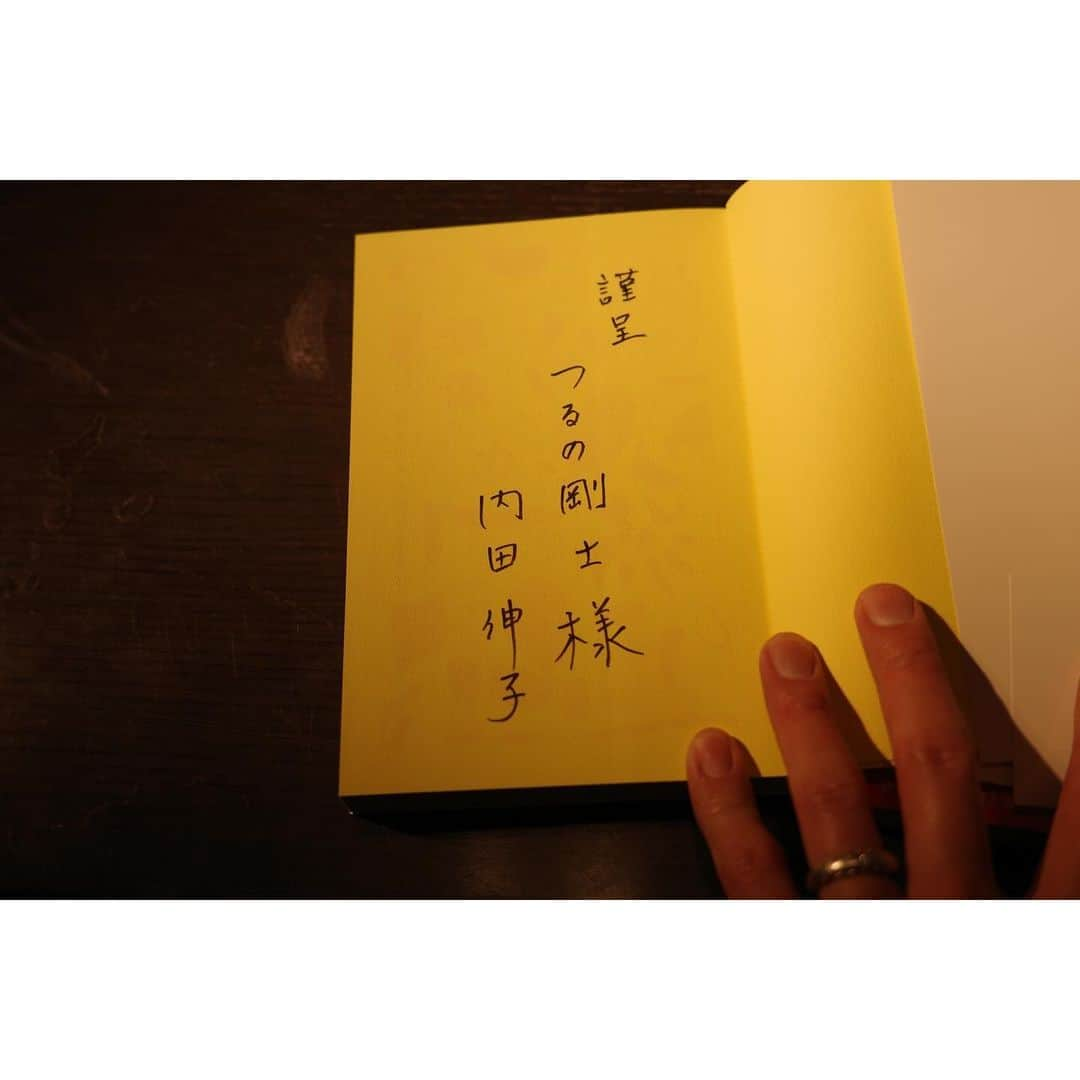 謹呈
つるの剛士様
内田伸子